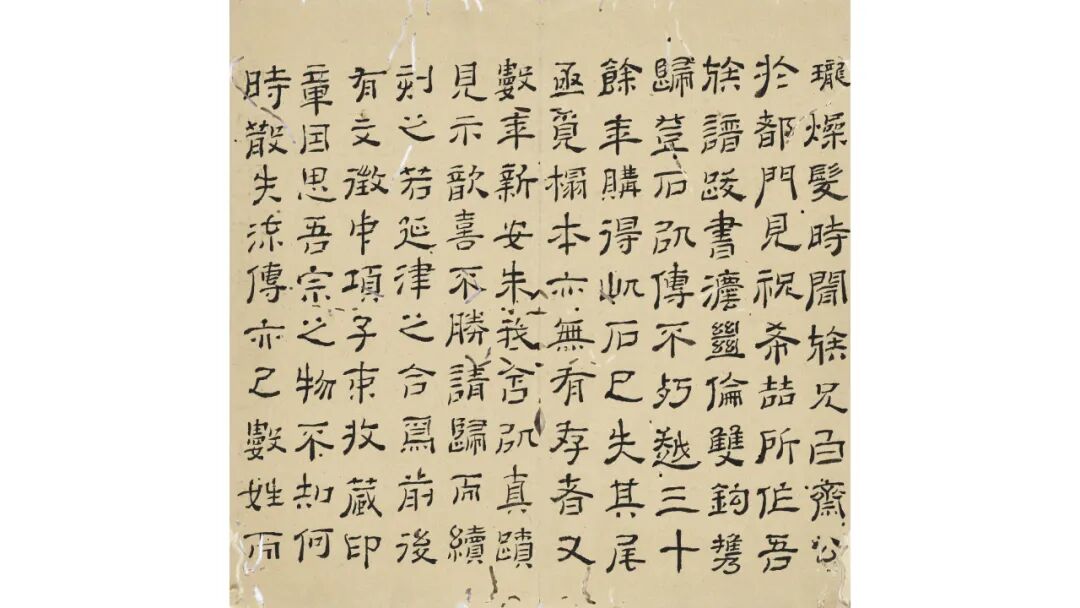 瓏燥髮時聞族兄白齋公
於都門見祝希喆所作吾
族譜跋書灋𢇍倫雙鉤攜
歸登石㕥傳不朽越三十
餘年購得此石已失其尾
亟覓榻本亦無有存者又
數年新安朱我岑㕥真蹟
見示歆喜不勝請歸而續
刻之若延津之合焉前後
有文徵中項子京收藏印
章因思吾宗之物不知何
時散失流傳亦已數姓而